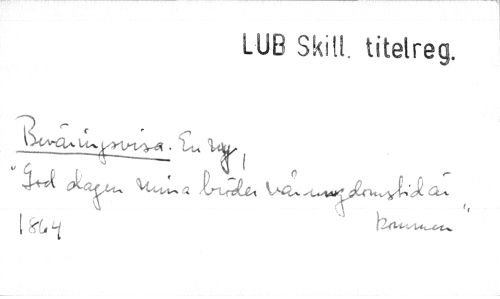 LUB Skill. titelreg.
Beväringsvisa. En ny,
"God dagen mina bröder vår ungdomstid är
kommen"
1864